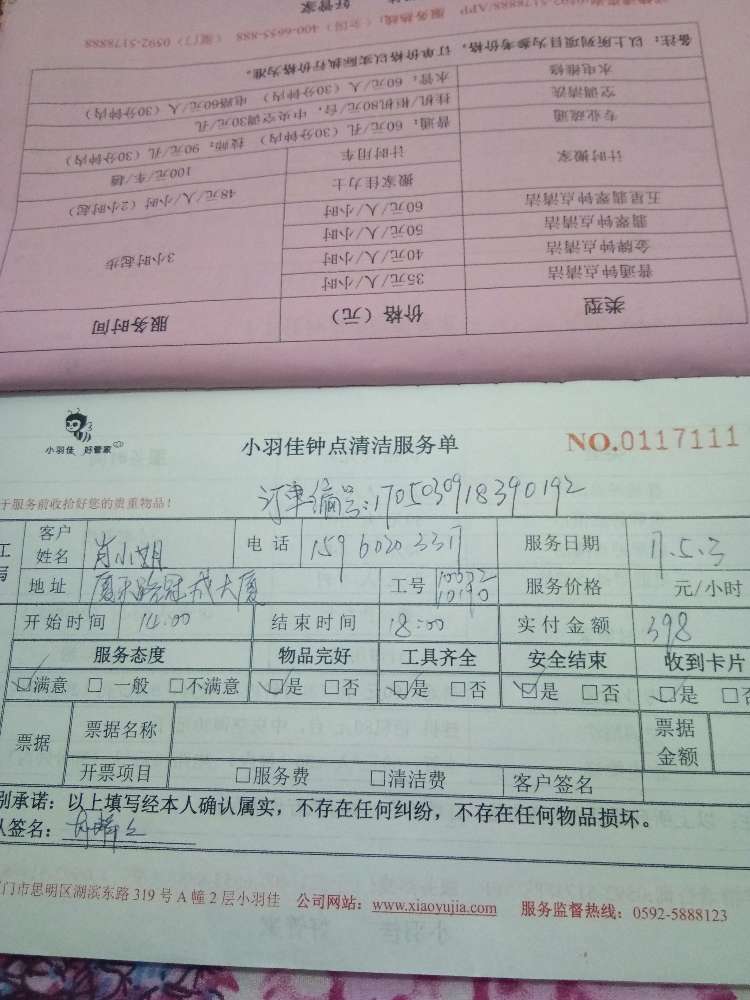 好管家
服务热线：（全国）400-6655-888 （厦门）0592-5178888
备注：以上所列项目为参考价格，订单价格以实际执行价格为准。
水电维修 水管：60元/人（30分钟内） 电路60元/人（30分钟内）
空调清洗 挂机/柜机80元/台，中央空调30元/孔
专业疏通 普通：60元/孔（30分钟内） 技师：90元/孔（30分钟内）
计时搬家 计时用车 100元/车/趟
搬家佳力士 48元/人/小时（2小时起）
五星翡翠钟点清洁 60元/人/小时
翡翠钟点清洁 50元/人/小时 3小时起步
金牌钟点清洁 40元/人/小时
普通钟点清洁 35元/人/小时
类型 价格（元） 服务时间
小羽佳 好管家
小羽佳钟点清洁服务单
NO.0117111
于服务前收拾好您的贵重物品！
订单编号：1705030918390192
客户姓名 肖小姐 电话 159 6020 3317 服务日期 17.5.3
地址 冠成大厦 工号 10332 10190 服务价格 元/小时
开始时间 14:00 结束时间 18:00 实付金额 398
服务态度 物品完好 工具齐全 安全结束 收到卡片
☑满意 □一般 □不满意 ☑是 □否 ☑是 □否 ☑是 □否 ☑是 □否
票据 票据名称 票据金额
开票项目 □服务费 □清洁费 客户签名
别承诺：以上填写经本人确认属实，不存在任何纠纷，不存在任何物品损坏。
人签名：
门市思明区湖滨东路319号A幢2层小羽佳 公司网站：www.xiaoyujia.com 服务监督热线：0592-5888123